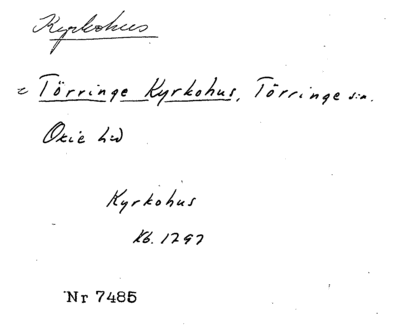 Kyrkohus
Törringe Kyrkohus, Törringe sn.
Oxie hd
Kyrkohus
Kb. 1797
Nr 7485